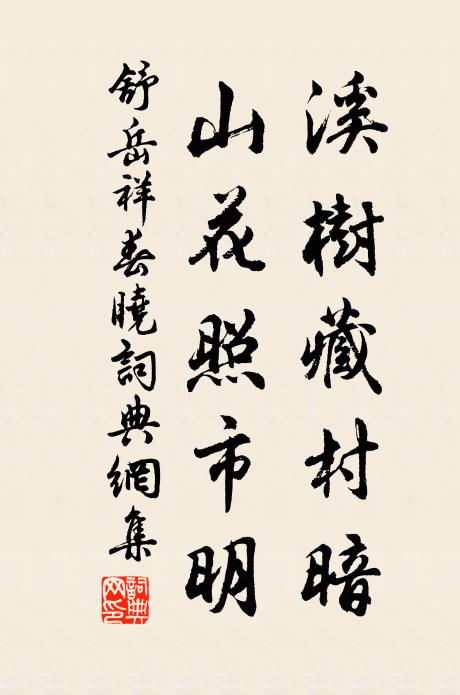 溪樹藏村暗
山花照市明
舒岳祥春曉詞典網集
詞典网印